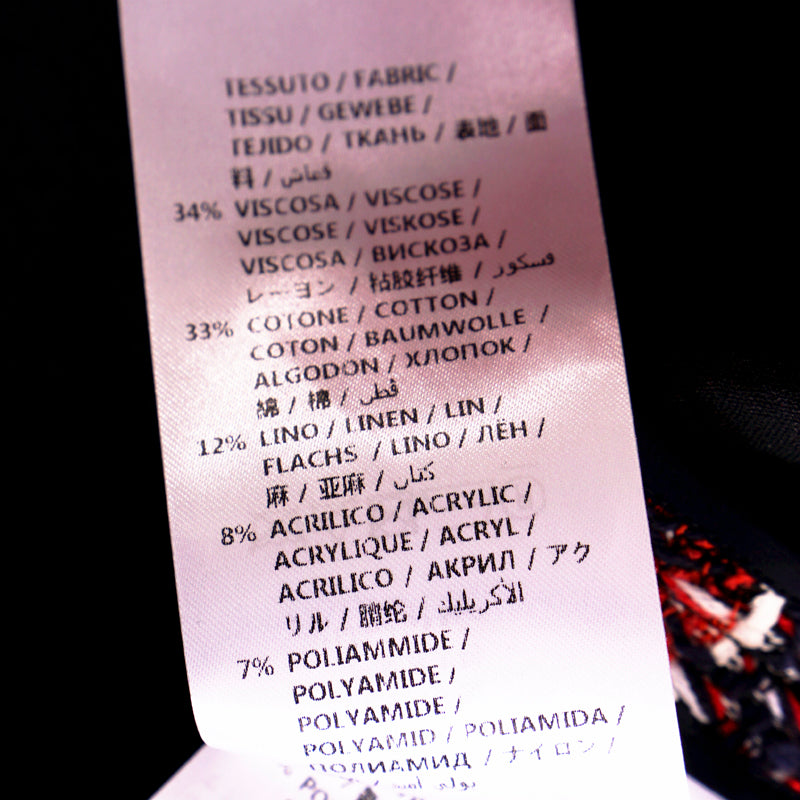 TESSUTO / FABRIC /
TISSU / GEWEBE /
TEJIDO / ТКАНЬ / 表地 / 面
料 / قماش
34% VISCOSA / VISCOSE /
VISCOSE / VISKOSE /
VISCOSA / ВИСКОЗА /
レーヨン / 粘胶纤维 / فسكور
33% COTONE / COTTON /
COTON / BAUMWOLLE /
ALGODON / ХЛОПОК /
綿 / 棉 / قطن
12% LINO / LINEN / LIN /
FLACHS / LINO / ЛЁН /
麻 / 亚麻 / كتان
8% ACRILICO / ACRYLIC /
ACRYLIQUE / ACRYL /
ACRILICO / АКРИЛ / アク
リル / 腈纶 / الأكريليك
7% POLIAMMIDE /
POLYAMIDE /
POLYAMIDE /
POLYAMID / POLIAMIDA /
ПОЛИАМИД / ナイロン /